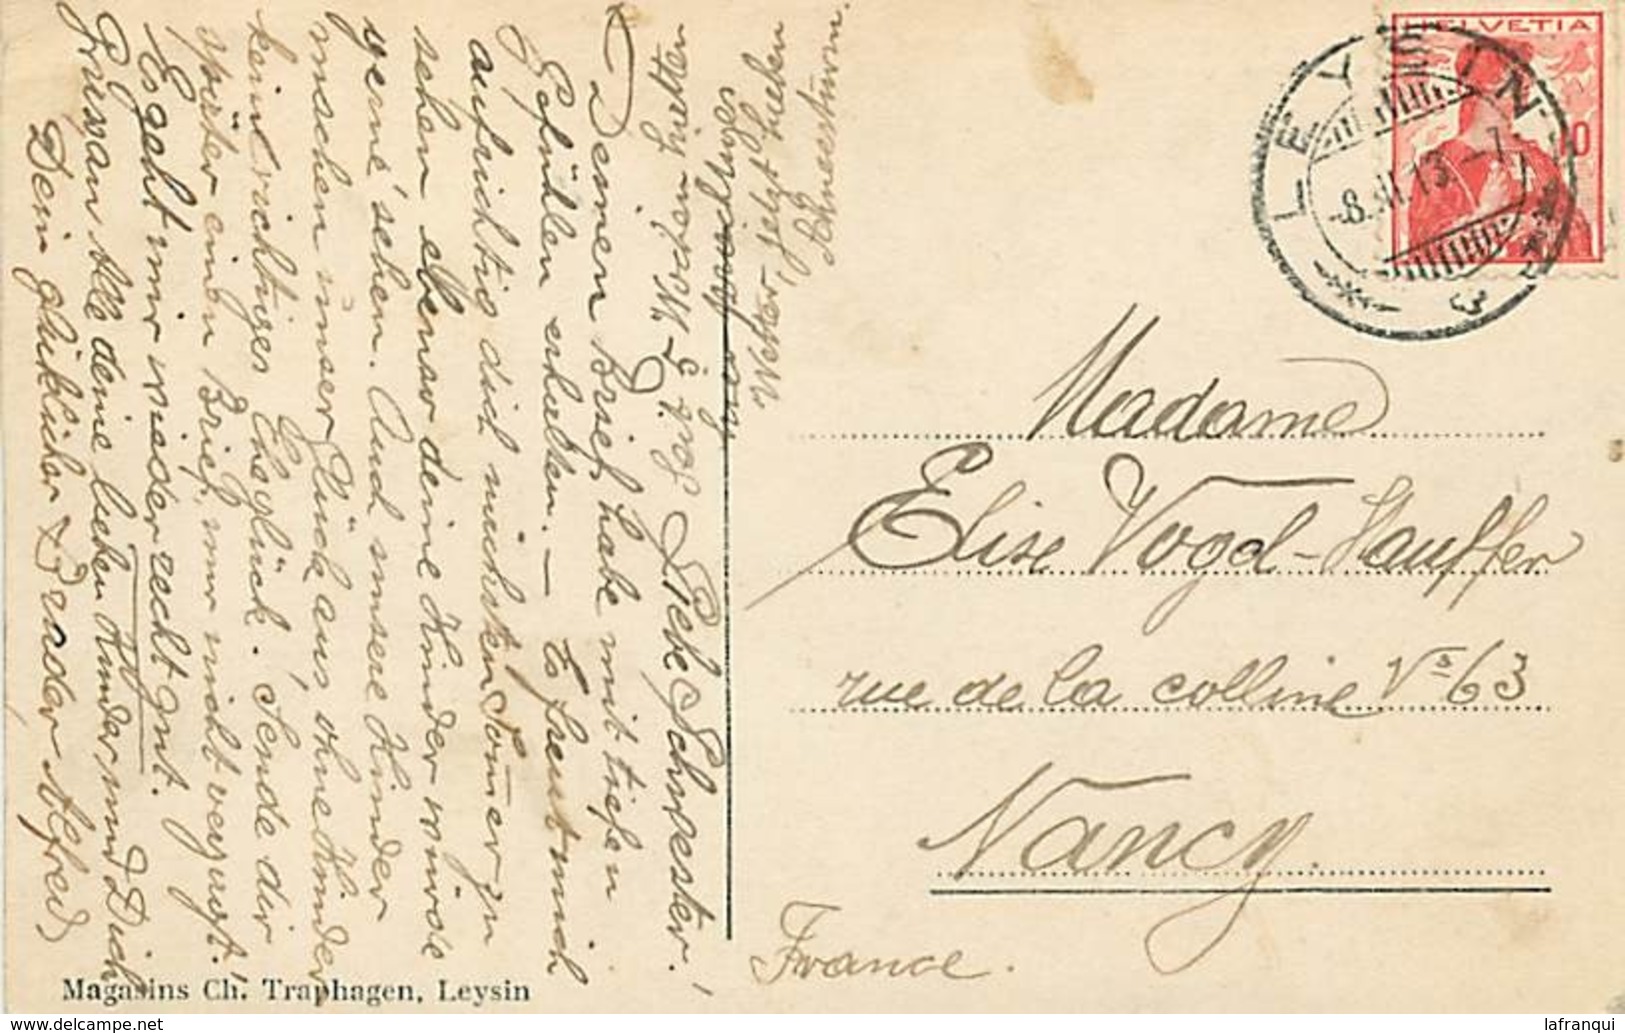 HELVETIA
10
LEYSIN
-8.III.13.-7
Madame
Elise Vogel-Hauffer
rue de la colline Nº 63
Nancy
France.
Liebe Schwester!
Deinen Brief habe mit tiefen
Gefühlen erhalten. — Es freut mich
aufrichtig dich nächsten Sommer zu
sehen ebenso deine Kinder würde
gerne sehen. Auch unsere Kinder
machen unser Glück aus, ohne Kinder
kein richtiges Eheglück. Sende dir
später einen Brief, nur nicht verzagt!
Es geht mir wieder recht gut.
Grüssan Alle deine lieben Kinder und Dich
Dein glücklicher Bruder Alfred
Wetter, jetzt haben
Schneesturm.
Magasins Ch. Traphagen, Leysin
lafranqui